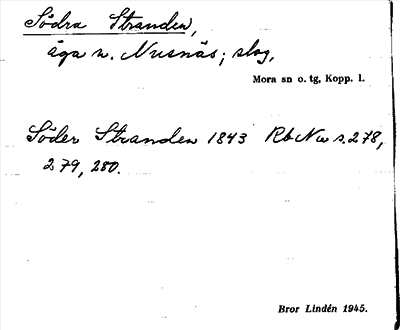 Södra Stranden,
äga n. Nusnäs; skog,
Mora sn o. tg, Kopp. l.
Söder Stranden 1843 Rb Nw s. 278,
279, 280.
Bror Lindén 1945.